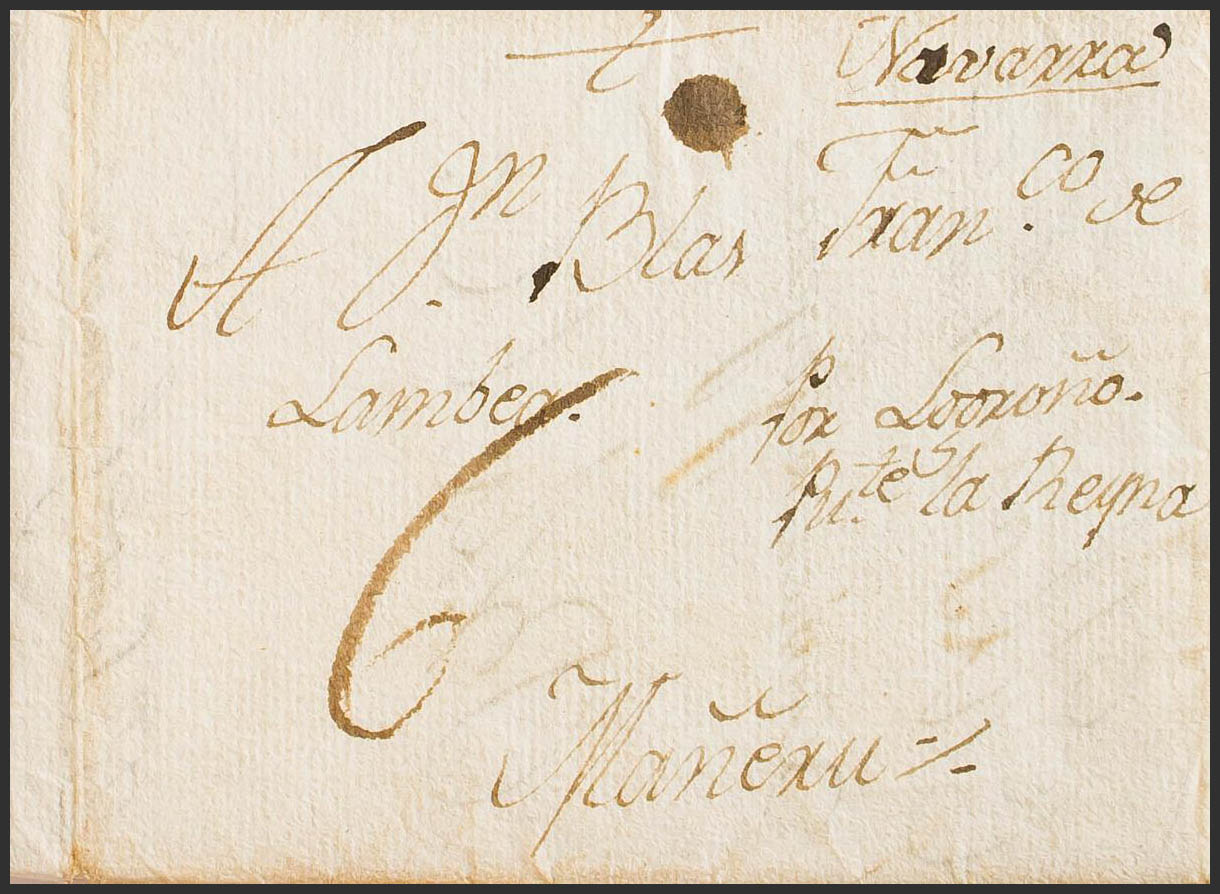 Navarra
A Jn. Blas Franco. de
Lambea.
por Logroño.
Pu.te la Reyna
6
Mañeru